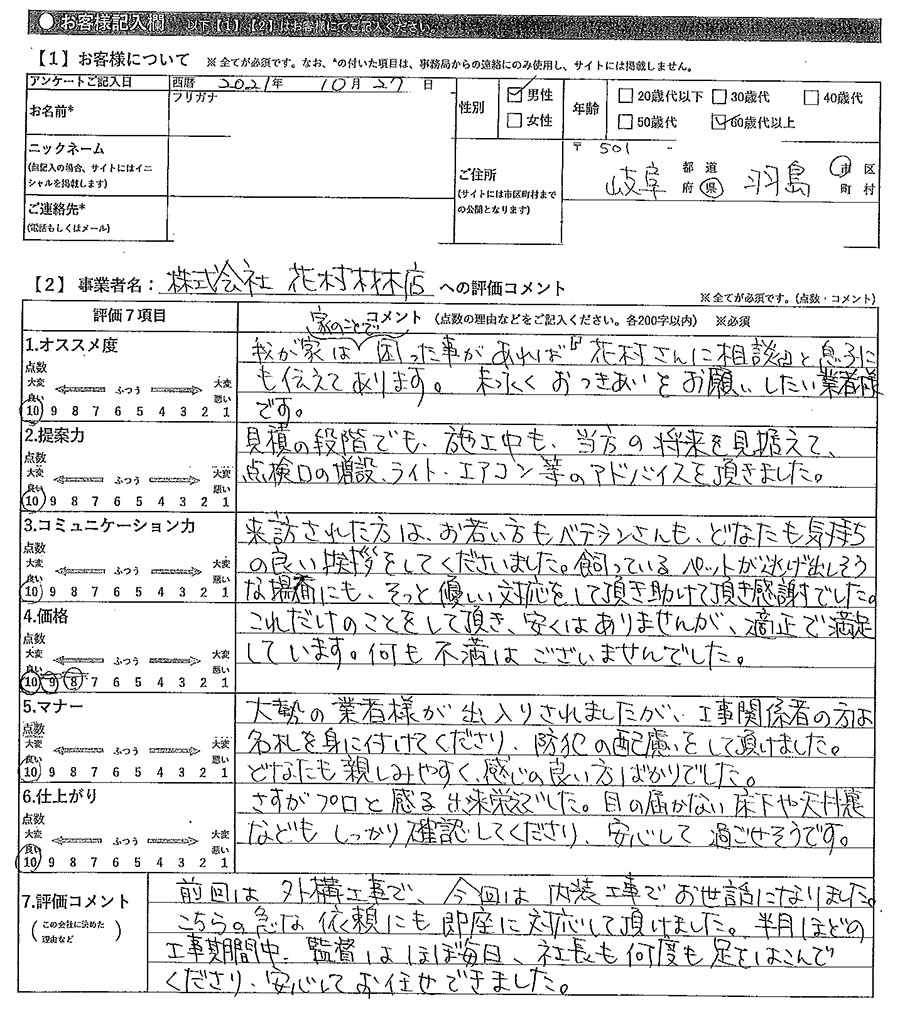 ● お客様記入欄 以下【1】、【2】はお客様にてご記入ください
【1】お客様について ※全てが必須です。なお、*の付いた項目は、事務局からの連絡にのみ使用し、サイトには掲載しません。
アンケートご記入日 西暦 2021年 10月27日
お名前* フリガナ
性別 ☑男性 □女性
年齢 □20歳代以下 □30歳代 □40歳代
□50歳代 ☑60歳代以上
ニックネーム
(点記入の場合、サイトにはイニ
シャルを掲載します)
ご連絡先*
(電話もしくはメール)
ご住所
(サイトには市区町村まで
の公開となります)
〒501 -
岐阜 都道府県 羽島 市区町村
【2】事業者名：株式会社 花村材林店 への評価コメント
※全てが必須です。(点数・コメント)
評価7項目
コメント (点数の理由などをご記入ください。各200字以内) ※必須
1.オススメ度
点数
大変良い ふつう 大変悪い
10 9 8 7 6 5 4 3 2 1
家のことで
我が家は困った事があれば『花村さんに相談』と息子に
も伝えてあります。末永くおつきあいをお願いしたい業者様
です。
2.提案力
点数
大変良い ふつう 大変悪い
10 9 8 7 6 5 4 3 2 1
見積の段階でも、施工中も、当方の将来を見据えて、
点検口の増設、ライト・エアコン等のアドバイスを頂きました。
3.コミュニケーション力
点数
大変良い ふつう 大変悪い
10 9 8 7 6 5 4 3 2 1
来訪された方は、お若い方もベテランさんも、どなたも気持ち
の良い挨拶をしてくださいました。飼っているペットが逃げ出しそう
な場面にも、そっと優しい対応をして頂き助けて頂き感謝でした。
4.価格
点数
大変良い ふつう 大変悪い
10 9 8 7 6 5 4 3 2 1
これだけのことをして頂き、安くはありませんが、適正で満足
しています。何も不満はございませんでした。
5.マナー
点数
大変良い ふつう 大変悪い
10 9 8 7 6 5 4 3 2 1
大勢の業者様が出入りされましたが、工事関係者の方は
名札を身に付けてくださり、防犯の配慮をして頂けました。
どなたも親しみやすく、感じの良い方ばかりでした。
6.仕上がり
点数
大変良い ふつう 大変悪い
10 9 8 7 6 5 4 3 2 1
さすがプロと感る出来栄えでした。目の届かない床下や天井裏
などもしっかり確認してくださり、安心して過ごせそうです。
7.評価コメント
(この会社に決めた
理由など)
前回は外構工事で、今回は内装工事でお世話になりました。
こちらの急な依頼にも即座に対応して頂けました。半月ほどの
工事期間中、監督はほぼ毎日、社長も何度も足をはこんで
くださり、安心してお任せできました。